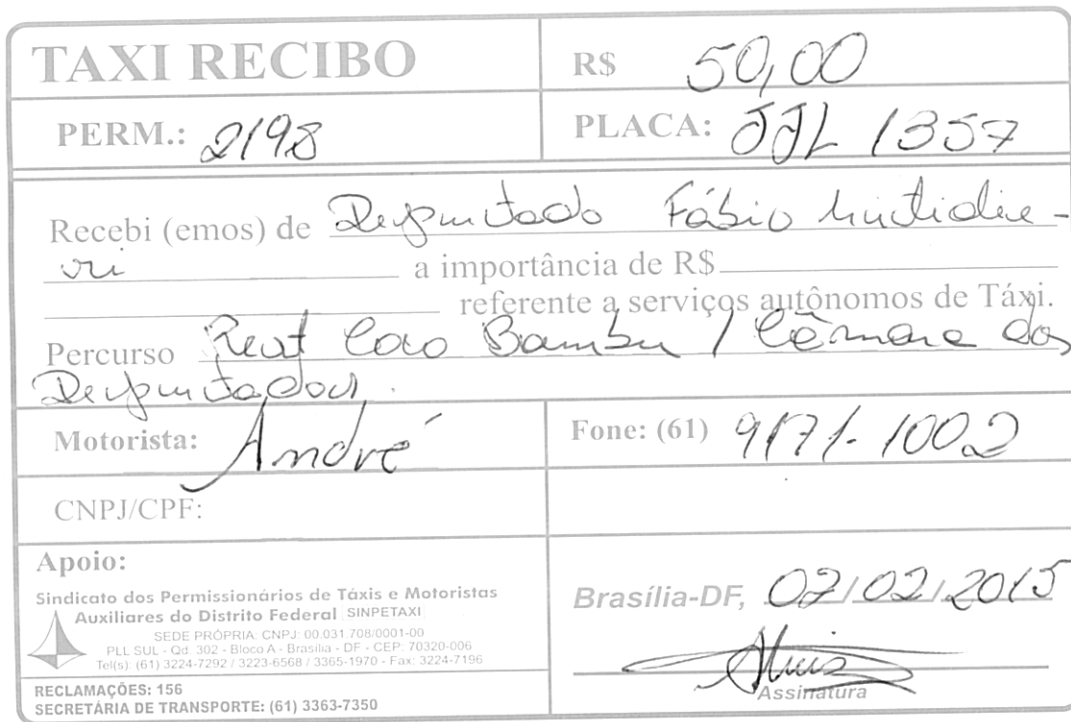 TAXI RECIBO
R$ 50,00
PERM.: 2198
PLACA: JJL 1357
Recebi (emos) de Deputado Fábio Mitidie-
ri a importância de R$
referente a serviços autônomos de Táxi.
Percurso Rest Coco Bambu / Câmara dos
Deputados.
Motorista: André
Fone: (61) 9171-1002
CNPJ/CPF:
Apoio:
Sindicato dos Permissionários de Táxis e Motoristas
Auxiliares do Distrito Federal SINPETAXI
SEDE PRÓPRIA: CNPJ: 00.031.708/0001-00
PLL SUL - Qd. 302 - Bloco A - Brasília - DF - CEP: 70320-006
Tel(s): (61) 3224-7292 / 3223-6568 / 3365-1970 - Fax: 3224-7196
RECLAMAÇÕES: 156
SECRETÁRIA DE TRANSPORTE: (61) 3363-7350
Brasília-DF, 02/02/2015
Assinatura